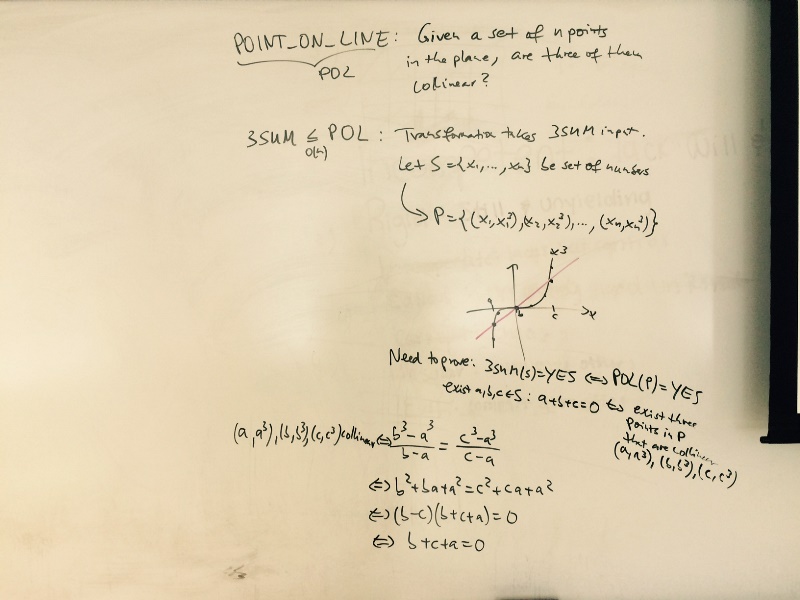 POINT_ON_LINE: Given a set of n points
in the plane, are three of them
POL
collinear?
3SUM ≤ POL: Transformation takes 3SUM input.
O(n)
Let S = {x₁,...,xₙ} be set of numbers
P = {(x₁,x₁³),(x₂,x₂³),...,(xₙ,xₙ³)}
x³
a b c x
Need to prove: 3SUM(S)=YES ⟺ POL(P)=YES
exist a,b,c∈S: a+b+c=0 ⟺ exist three
points in P
that are collinear
(a,a³), (b,b³), (c,c³)
(a,a³),(b,b³),(c,c³) collinear ⟺ b³-a³/b-a = c³-a³/c-a
⟺ b²+ba+a² = c²+ca+a²
⟺ (b-c)(b+c+a) = 0
⟺ b+c+a=0